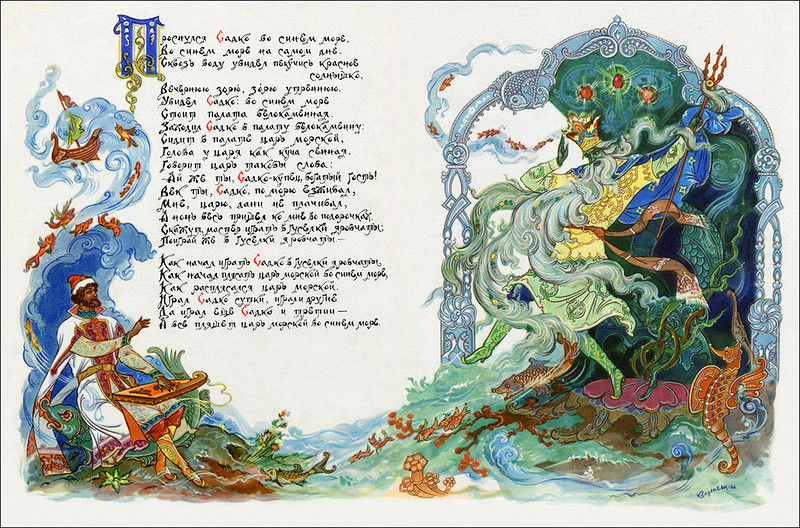 Проснулся Садко во синем море,
Во синем море на самом дне.
Сквозь воду увидел пекучись красное
солнышко,
Вечернюю зорю, зорю утреннюю.
Увидел Садко: во синем море
Стоит палата белокаменная.
Заходил Садко в палату белокаменну:
Сидит в палате царь морской,
Голова у царя как куча сенная.
Говорит царь таковы слова:
—Ай же ты, Садко-купец, богатый гость!
Век ты, Садко, по морю езживал,
Мне, царю, дани не плачивал,
А нонь весь пришел ко мне во подарочках.
Скажут, мастер играть в гусельки яровчаты;
Поиграй же в гусельки яровчаты.—
Как начал играть Садко в гусельки яровчаты,
Как начал плясать царь морской во синем море,
Как расплясался царь морской.
Играл Садко сутки, играл и другие
Да играл еще Садко и третии—
А все пляшет царь морской во синем море.